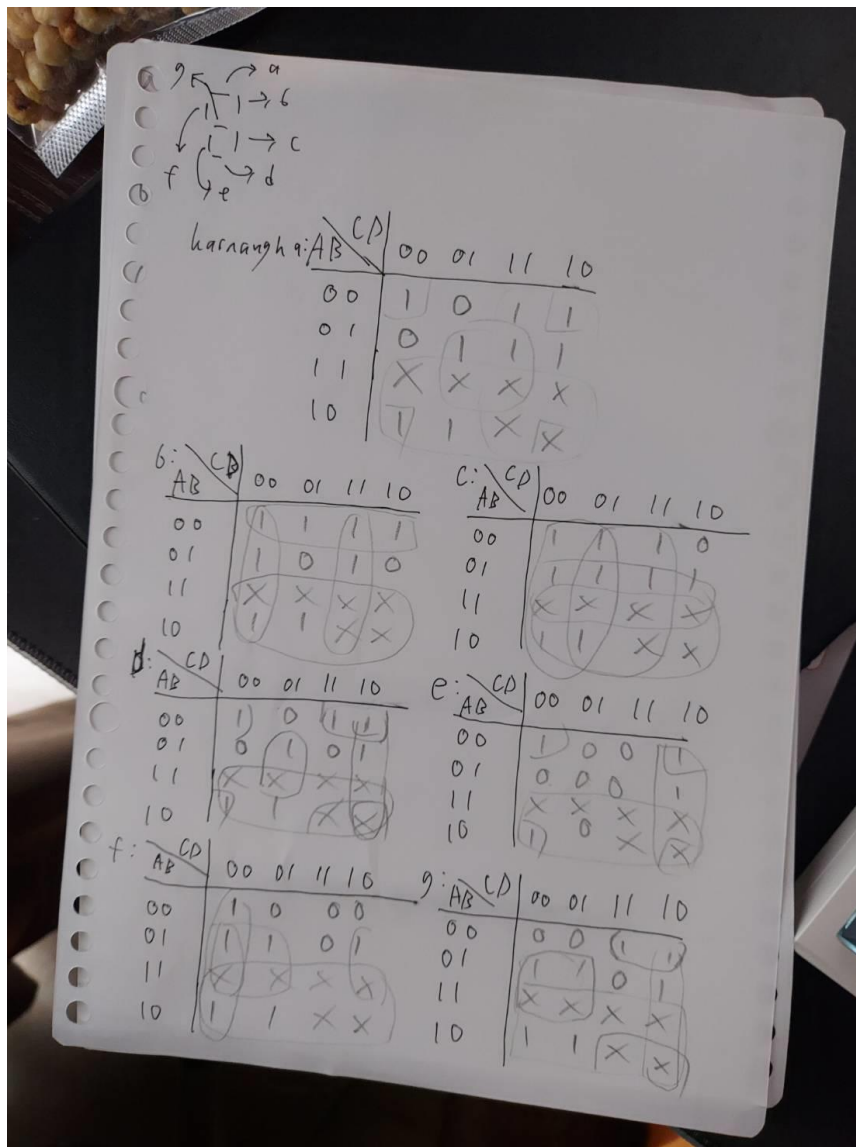 g a
b
c
f e d
karnaugh a: AB CD 00 01 11 10
00 1 0 1 1
01 0 1 1 1
11 X X X X
10 1 1 X X
b: AB CD 00 01 11 10
00 1 1 1 1
01 1 0 1 0
11 X X X X
10 1 1 X X
C: AB CD 00 01 11 10
00 1 1 1 0
01 1 1 1 1
11 X X X X
10 1 1 X X
d: AB CD 00 01 11 10
00 1 0 1 1
01 0 1 0 1
11 X X X X
10 1 1 X X
e: AB CD 00 01 11 10
00 1 0 0 1
01 0 0 0 1
11 X X X X
10 1 0 X X
f: AB CD 00 01 11 10
00 1 0 0 0
01 1 1 0 1
11 X X X X
10 1 1 X X
g: AB CD 00 01 11 10
00 0 0 1 1
01 1 1 0 1
11 X X X X
10 1 1 X X